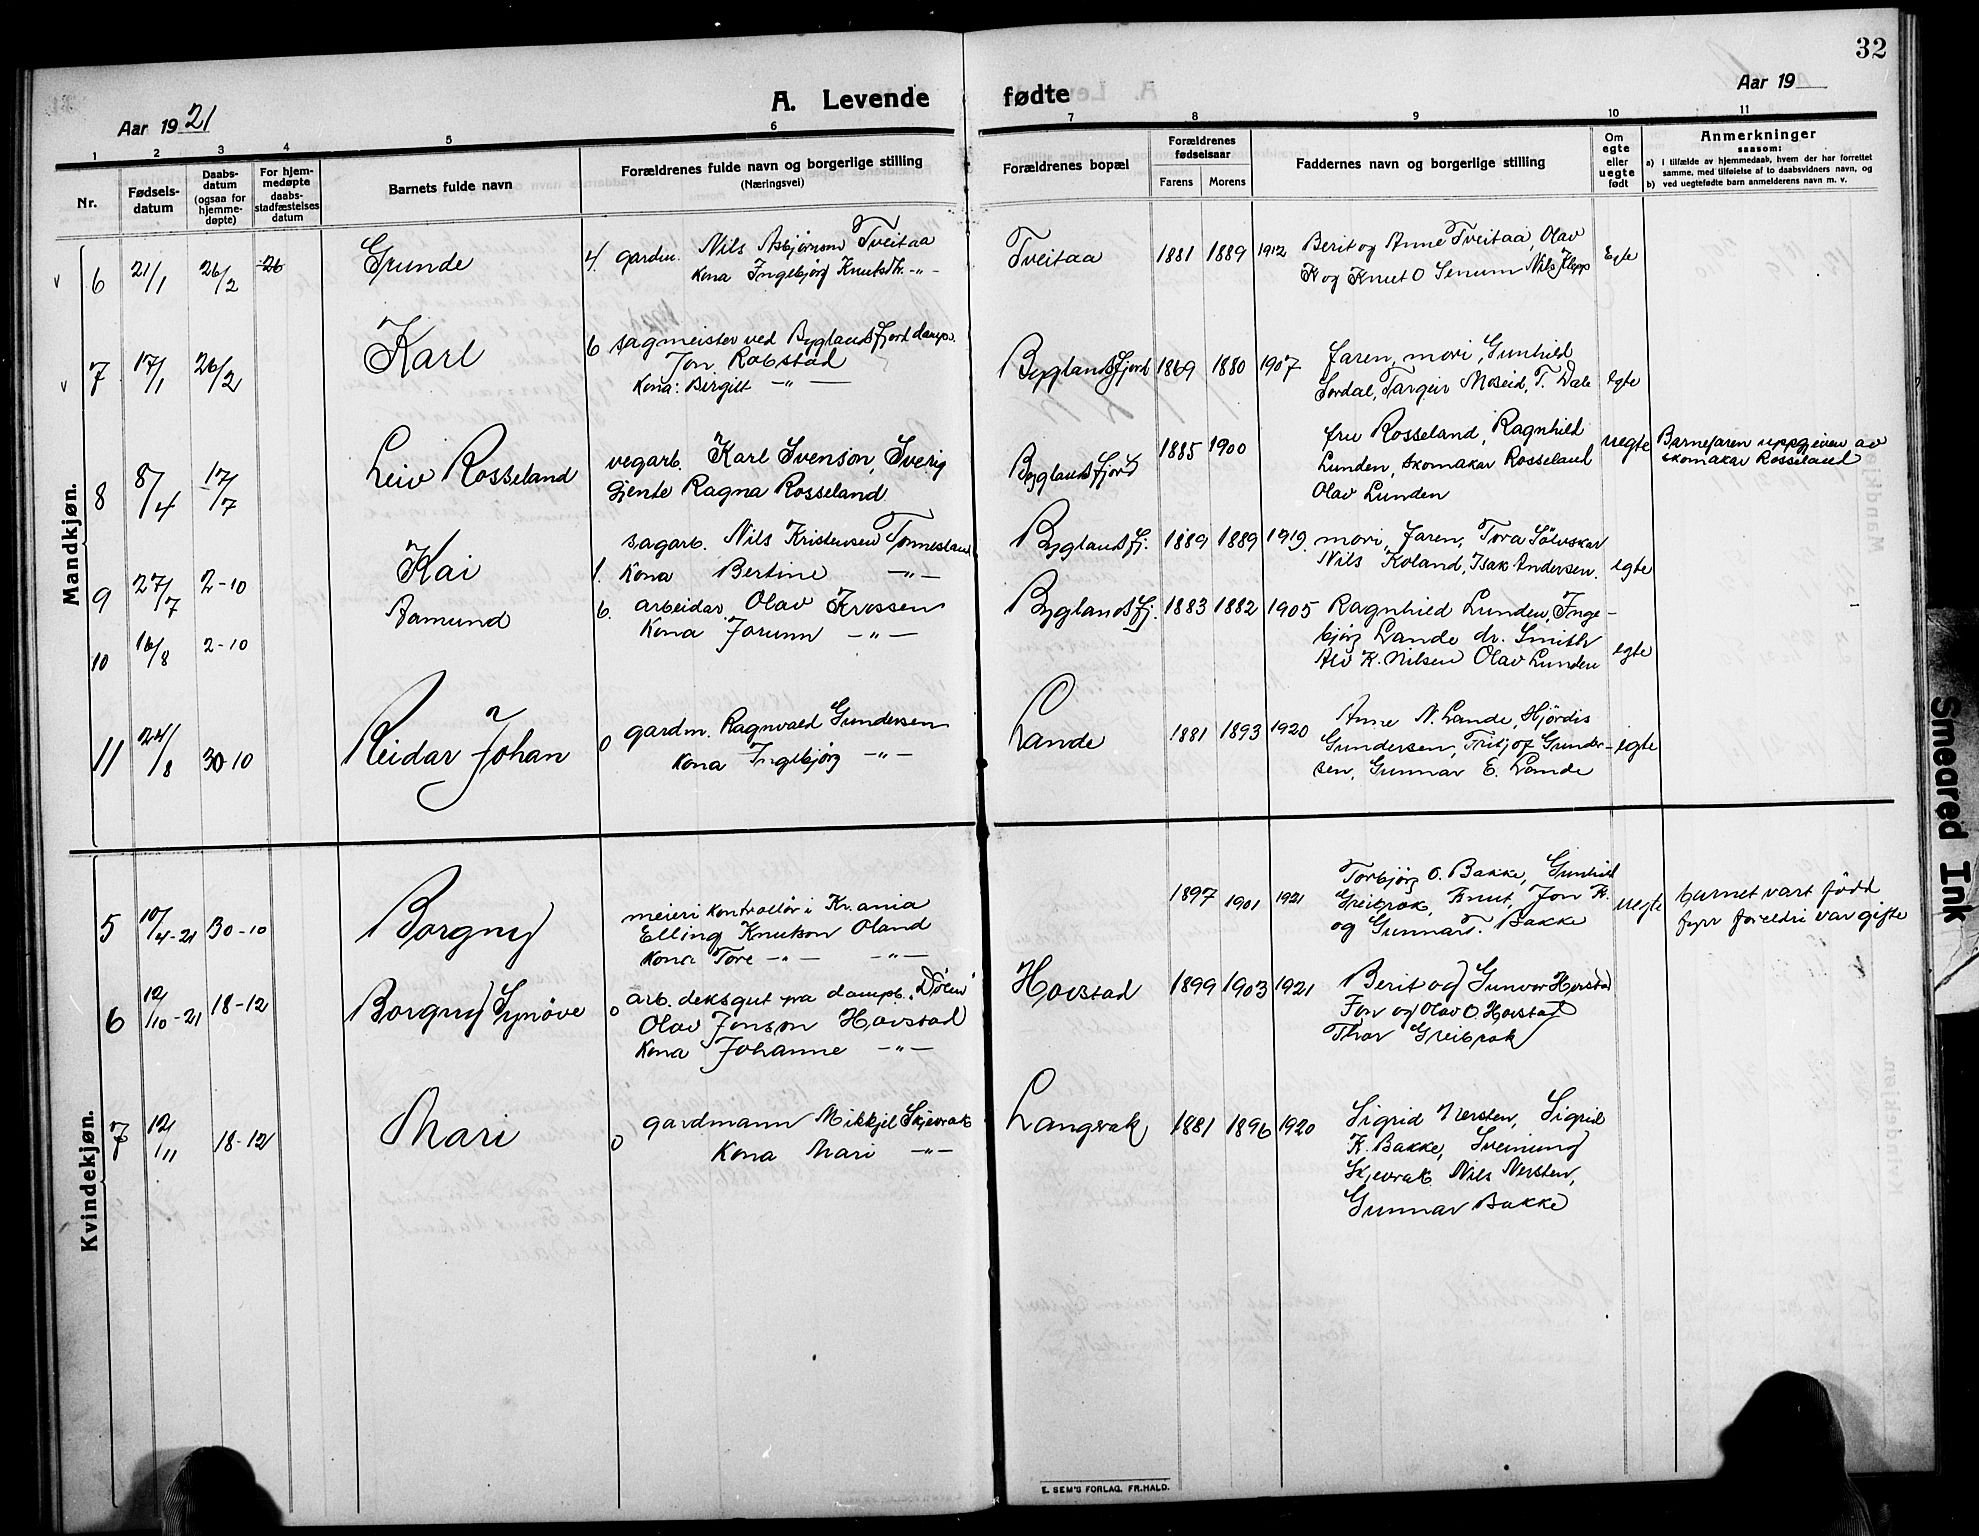 32
Aar 1921
A. Levende fødte
Aar 19
1 2 3 4 5 6 7 8 9 10 11
Nr.
Fødsels-datum
Daabs-datum (ogsaa for hjemme-døpte)
For hjem-medøpte daabs-stadfæstelses datum
Barnets fulde navn
Forældrenes fulde navn og borgerlige stilling
(Næringsvei)
Forældrenes bopæl
Forældrenes fødselsaar
Farens Morens
Faddernes navn og borgerlige stilling
Om egte eller uegte født
Anmerkninger
saasom:
a) i tilfælde av hjemmedaab, hvem der har forrettet samme, med tilføielse af to daabsvidners navn, og
b) ved uegtefødte barn anmelderens navn m. v.
Mandkjøn.
v 6 21/1 26/2 26 Grunde 4. gardm. Nils Asbjørnson Tveitaa
Kona Ingebjørg Knutsdtr. -"-
Tveitaa 1881 1889 1912 Berit og Anne Tveitaa, Olav
K og Knut O Senum Nils Klepp
Egte
v 7 17/1 26/2 Karl 6 sagmeister ved Byglandsfjord damps.
Jon Robstad
Kona: Bergilt -"-
Byglandsfjord 1869 1880 1907 faren, mori, Gunhild
Sordal, Targeir Moseid, T. Dale
egte
8 8/4 17/7 Leiv Rosseland vegarb. Karl Svenson, Sverig
gjente Ragna Rosseland
Byglandsfjord 1885 1900 fru Rosseland, Ragnhild
Lunden, skomakar Rosseland
Olav Lunden
uegte Barnefaren uppgjeven av
skomakar Rosseland
9 27/7 2-10 Kai 1. sagarb. Nils Kristensen Tønnesland
Kona Bertine -"-
Byglandsfj. 1889 1889 1919. mori, faren, Tora Sölvskar
Nils Koland, Isak Andersen.
egte
10 16/8 2-10 Aamund 6. arbeidar Olav Krossen
Kona Jorunn -"-
Byglandsfj. 1883 1882 1905 Ragnhild Lunden, Inge-
bjørg Lande dr. Smith
Alv K. Nilsen Olav Lunden
egte
11 24/8 30-10 Reidar Johan 0 gardm. Ragnvald Gundersen
Kona Ingebjørg -"-
Lande 1881 1893 1920 Anne N. Lande, Hjördis
Gundersen, Fritjof Gunder-
sen, Gunnar E. Lande
egte
Kvindekjøn.
5 10/4-21 30-10 Borgny meieri kontrollør i Kr.ania
Elling Knutson Oland
Kona Tore -"- -"-
1897 1901 1921 Torbjørg O. Bakke, Gunhild
Greibrok, Knut, Jon K.
og Gunnar T. Bakke
uegte barnet vart född
fyrr foreldri var gifte
6 12/10-21 18-12 Borgny Synøve 0 arb. deksgut pra dampb. "Dölen"
Olav Jonson Hovstad
Kona Johanne -"-
Hovstad 1899 1903 1921 Berit og Gunvor Hovstad
Jon og Olav O Hovstad
Thor Greibrok
7 12/11 18-12 Mari 0 gardmann Mikkjel Skjevrak
Kona Mari -"-
Langrak 1881 1896 1920 Sigrid Nersten, Sigrid
K. Bakke, Sveinung
Skjevrak Nils Nersten,
Gunnar Bakke
E. SEM'S FORLAG, FR.HALD.
Smeared Ink